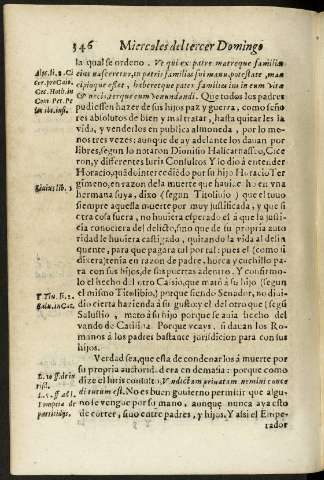 346 Miercoles del tercer Domingo
la qual se ordeno. Ve qui ex patre matreque familias
eius nasceretur, in patris familias sui manu, potestate, man
cipioque esset, haberetque pater familias ius in eum vitæ
& necis, terque eum venundandi. Que todos los padres
pudiessen hazer de sus hijos paz y guerra, como seño
res absolutos de bien y maltratar, hasta quitarles la
vida, y venderlos en publica almoneda, por lo me
nos tres vezes: aunque de ay adelante los dauan por
libres, segun lo notaron Dionisio Halicarnasseo, Cice
ron, y differentes Iuris Consultos Y lo dio à entender
Horacio, quãdo intercediẽdo por su hijo Horacio Ter
gimeno, en razon dela muerte que hauia hecho en vna
hermana suya, dixo (segun Titoliuio) que el tuuo
siempre aquella muerte por muy justificada, y que si
otra cosa fuera, no huuiera esperado el à que la justi-
cia conociera del delicto, sino que de su propria auto
ridad le huuiera castigado, quitando la vida al delin
quente, para que pagara tal por tal: pues el (como si
dixera) tenia en razon de padre, horca y cuchillo pa-
ra con sus hijos, de sus puertas adentro. Y confirmo-
lo el hecho del otro Casio, que mató à su hijo (segun
el mismo Titoliuio,) porque siendo Senador, no diui-
dio cierta hazienda à su gusto: y el del otro que (segũ
Salustio, mato à su hijo porque se auia hecho del
vando de Catilina Porque veays, si dauan los Ro-
manos à los padres bastante jurisdicion para con sus
hijos.
Verdad sea, que esta de condenarlos à muerte por
su propria autoridad era en demasia: porque como
dize el Iuris consulto, Vindictam priuatam nemini conce
di iurum est. No es buen gouierno permitir que algu-
no se vengue por su mano, aunque nunca aya esto
de correr, sino entre padres, y hijos. Y assi el Empe-
rador
Titoliuius lib. 1
T. Liu. li. 2.